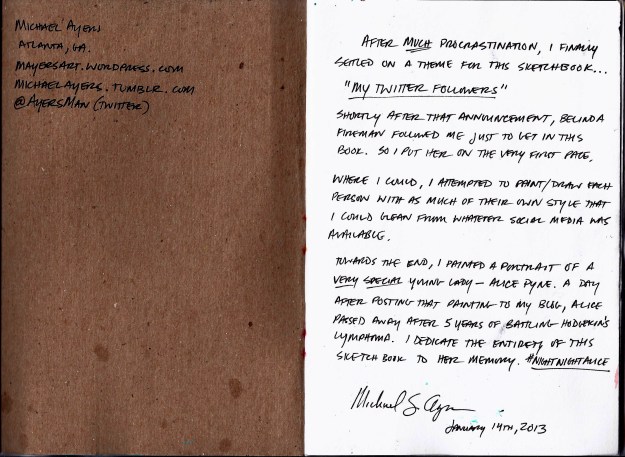 MICHAEL AYERS
ATLANTA, GA.
MAYERSART.WORDPRESS.COM
MICHAELAYERS.TUMBLR.COM
@AYERSMAN (TWITTER)
AFTER MUCH PROCRASTINATION, I FINALLY
SETTLED ON A THEME FOR THIS SKETCHBOOK...
"MY TWITTER FOLLOWERS"
SHORTLY AFTER THAT ANNOUNCEMENT, BELINDA
FIREMAN FOLLOWED ME JUST TO GET IN THIS
BOOK. SO I PUT HER ON THE VERY FIRST PAGE.
WHERE I COULD, I ATTEMPTED TO PAINT/DRAW EACH
PERSON WITH AS MUCH OF THEIR OWN STYLE THAT
I COULD GLEAN FROM WHATEVER SOCIAL MEDIA WAS
AVAILABLE.
TOWARDS THE END, I PAINTED A PORTRAIT OF A
VERY SPECIAL YOUNG LADY – ALICE PYNE. A DAY
AFTER POSTING THAT PAINTING TO MY BLOG, ALICE
PASSED AWAY AFTER 5 YEARS OF BATTLING HODGKIN'S
LYMPHOMA. I DEDICATE THE ENTIRETY OF THIS
SKETCHBOOK TO HER MEMORY. #NIGHTNIGHTALICE
Michael S. Ayers
JANUARY 14TH, 2013